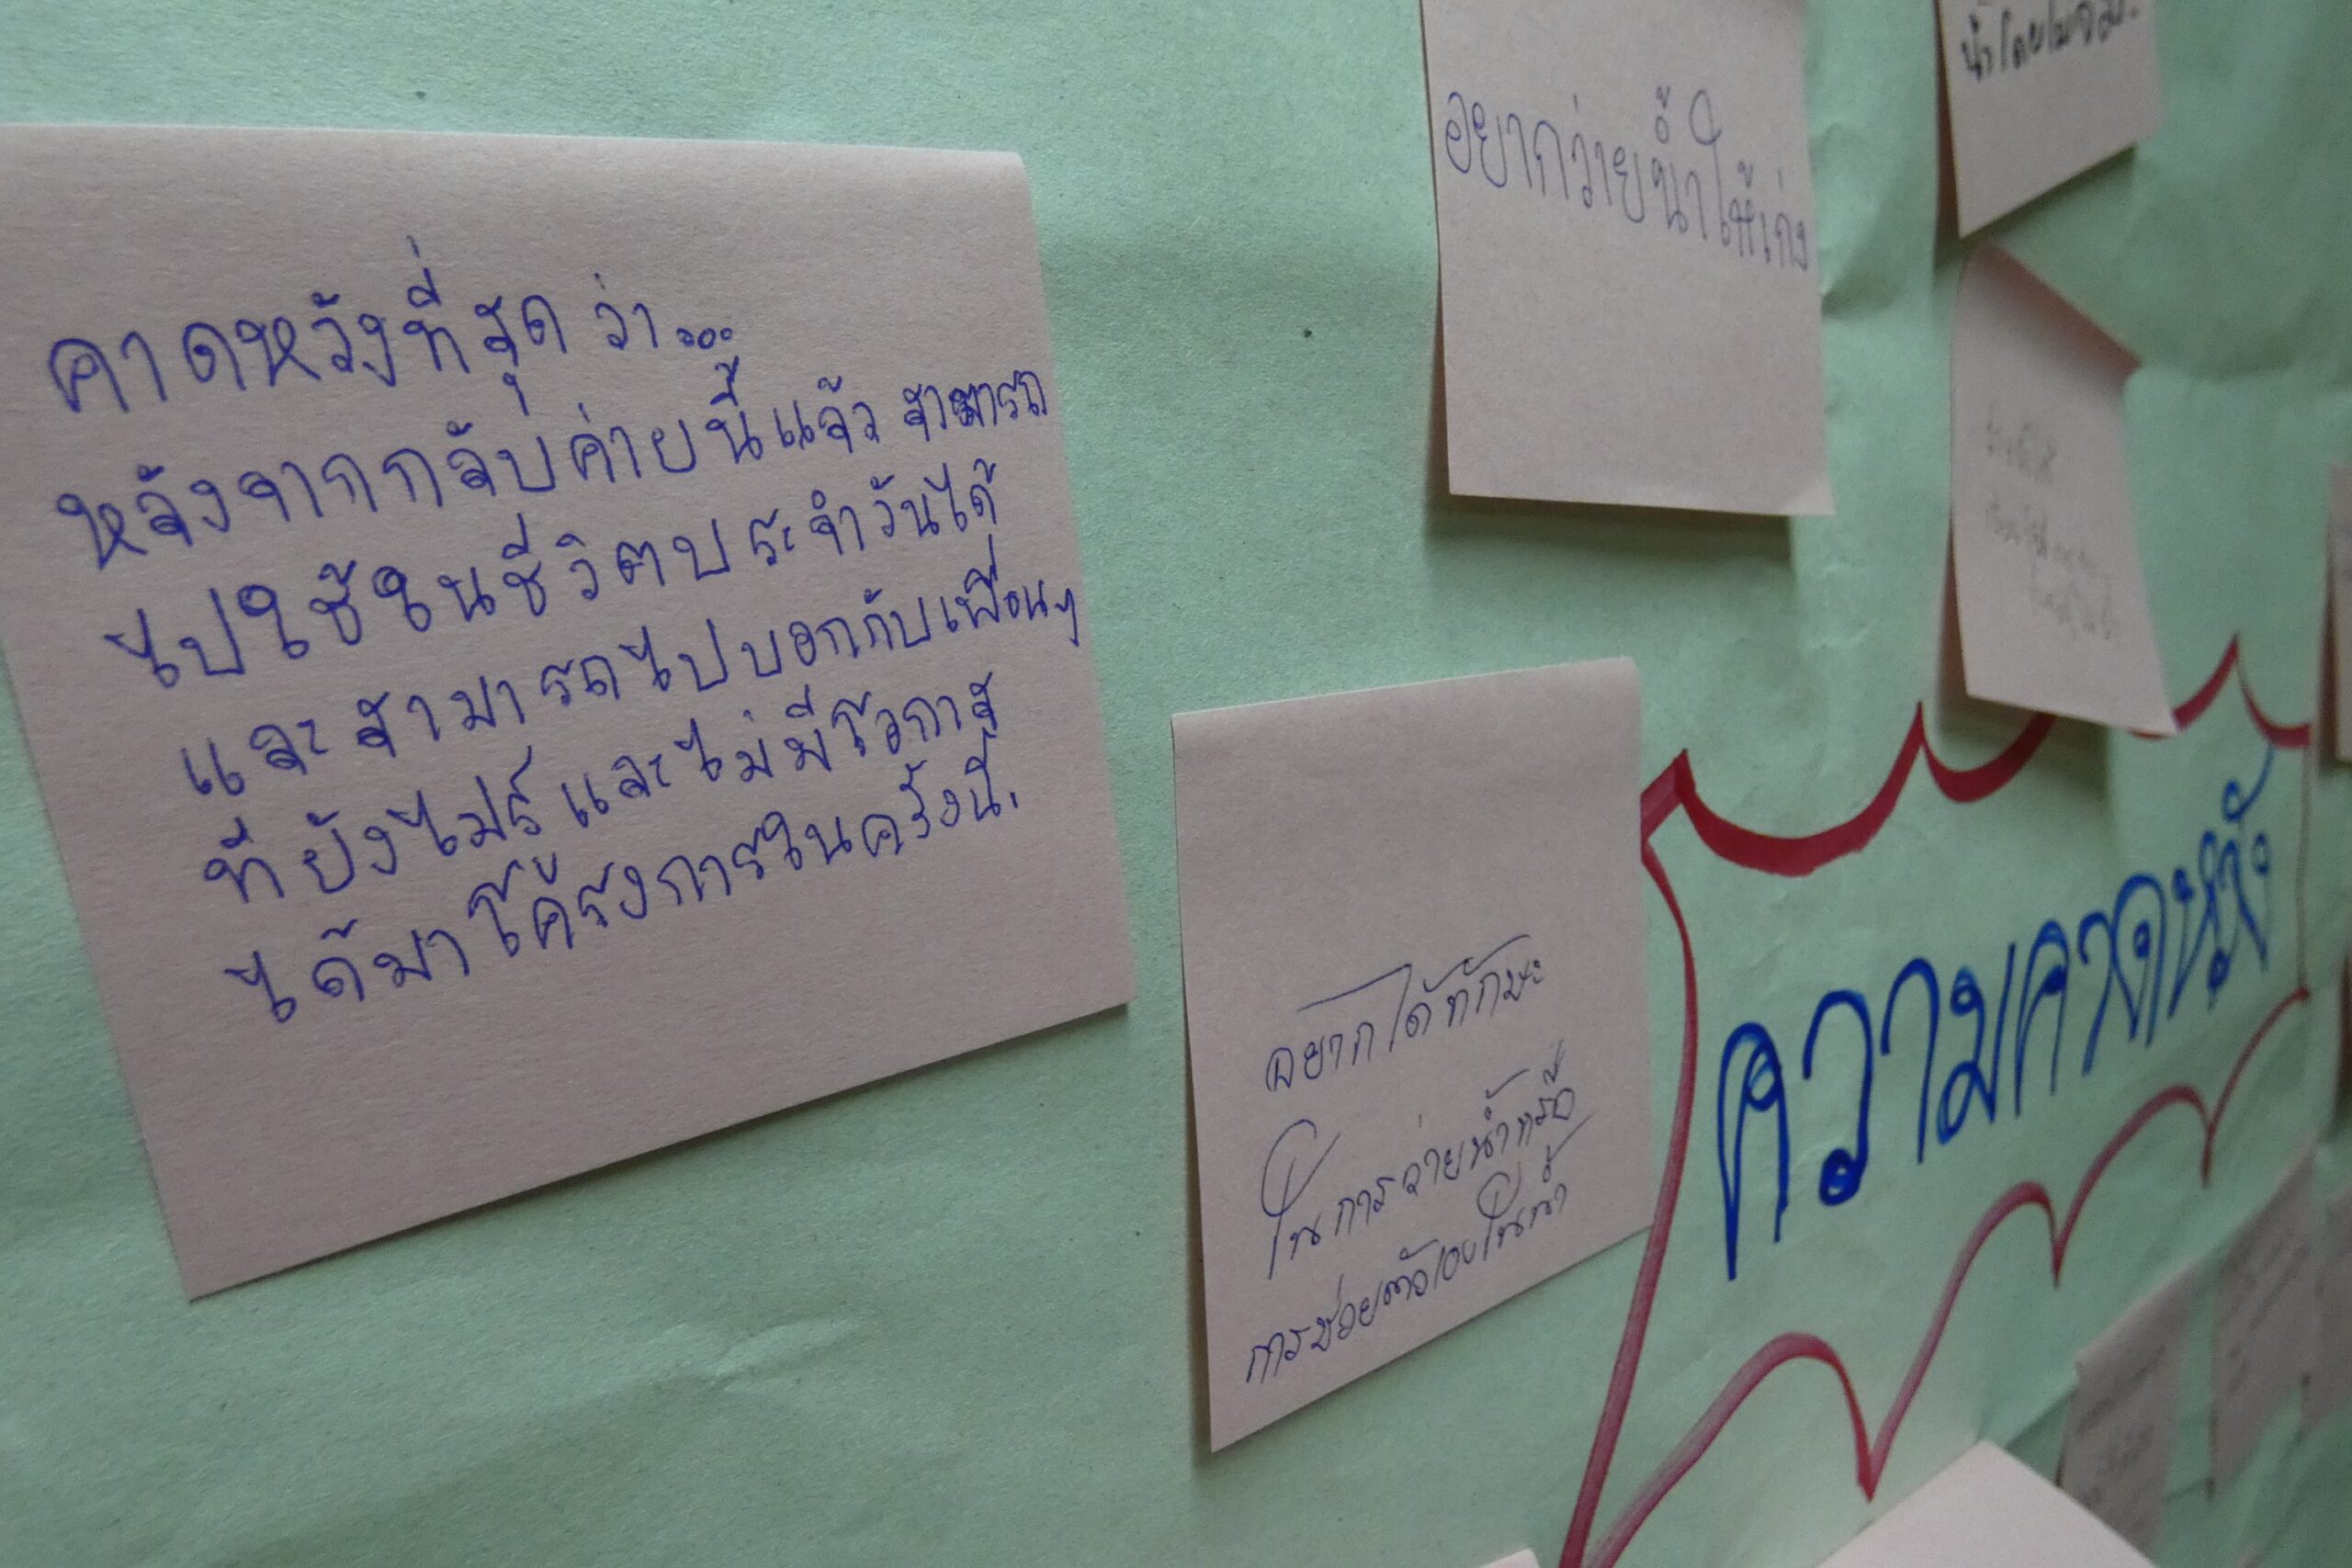 คาดหวังที่สุดว่า...
หลังจากกลับค่ายนี้แล้ว สามารถ
ไปใช้ในชีวิตประจำวันได้
และสามารถไปบอกกับเพื่อนๆ
ที่ยังไม่รู้ และไม่มีโอกาส
ได้มาโค้รงการในครั้งนี้.
อยากว่ายน้ำให้เก่ง
น้ำโดยไม่จม.
อยากได้ทักษะ
ในการว่ายน้ำหรือ
การช่วยตัวเองในน้ำ
ความคาดหวัง